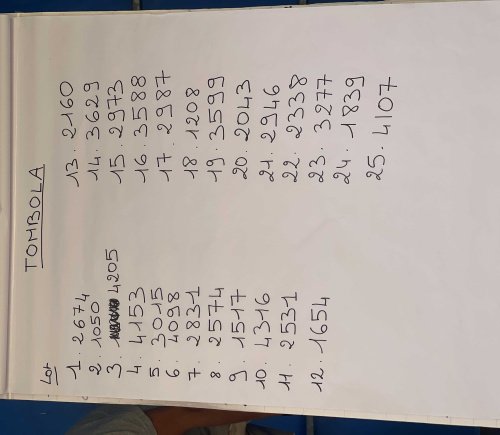 TOMBOLA
Lot
1. 2674
2. 1050
3. 4205
4. 4153
5. 3015
6. 4098
7. 2831
8. 2574
9. 1517
10. 4316
11. 2531
12. 1654
13. 2160
14. 3629
15. 2973
16. 3588
17. 2987
18. 1208
19. 3599
20. 2043
21. 2946
22. 2338
23. 3277
24. 1839
25. 4107